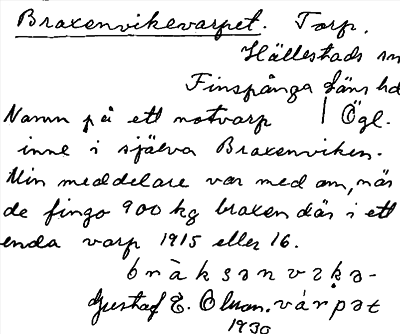 Braxenvikevarpet. Torp.
Hällestads sn
Finspånga läns hd
Namn på ett notvarp | Ögl.
inne i själva Braxenviken.
Min meddelare var med om, när
de fingo 900 kg braxen där i ett
enda varp 1915 eller 16.
bràksənvekə-
Gustaf E. Olsson. várpət
1930